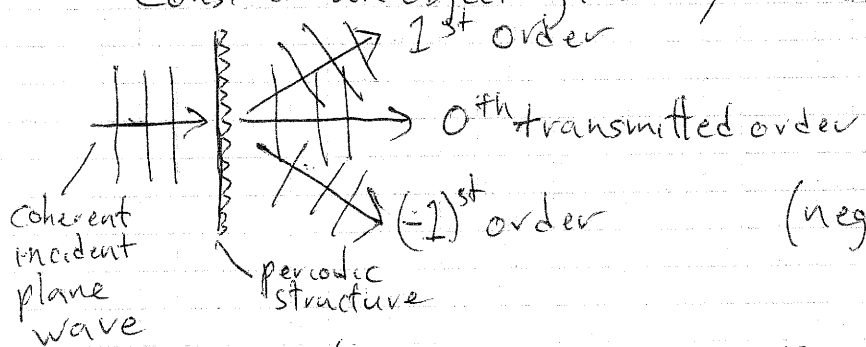 1st order
0th transmitted order
(-1)st order
(neg
coherent
incident
plane
wave
periodic
structure